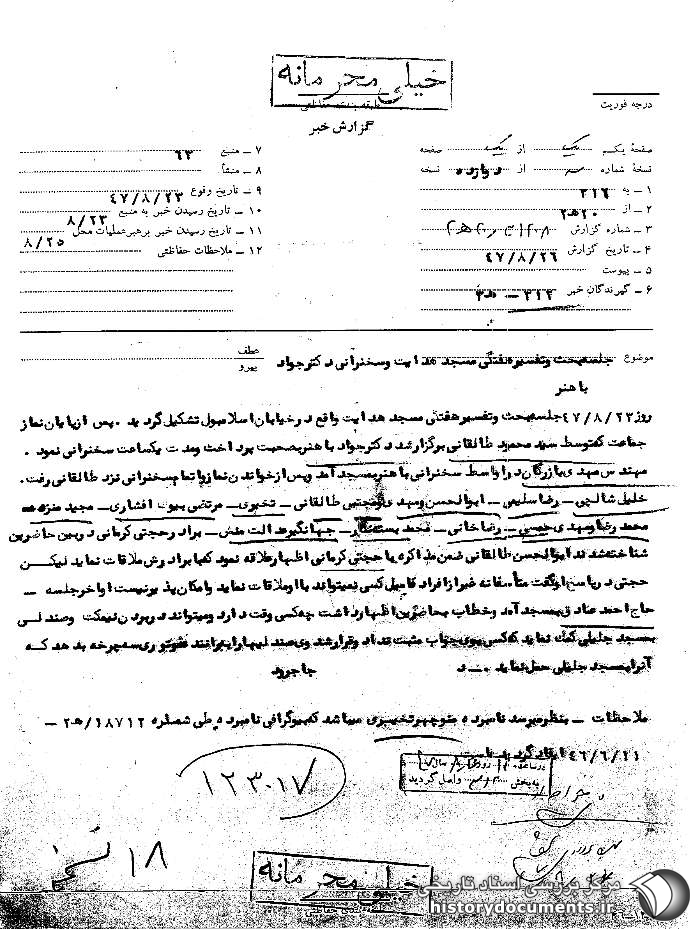 خیلی محرمانه
طبقه بندی حفاظتی
گزارش خبر
درجه فوریت
صفحهٔ یکم یک از یک صفحه
نسخهٔ شماره از دوازده نسخه
۱ ـ به ۳۱۶
۲ ـ از ۲۰ ه‍ ۲
۳ ـ شماره گزارش
۴ ـ تاریخ گزارش ۴۷/۸/۲۶
۵ ـ پیوست
۶ ـ گیرندگان خبر ۳۱۲ ـ
۷ ـ منبع ۶۳
۸ ـ منشأ
۹ ـ تاریخ وقوع ۴۷/۸/۲۳
۱۰ ـ تاریخ رسیدن خبر به منبع ۸/۲۳
۱۱ ـ تاریخ رسیدن خبر برهبر عملیات محل ۸/۲۵
۱۲ ـ ملاحظات حفاظتی
موضوع جلسه بحث و تفسیر هفتگی مسجد هدایت و سخنرانی دکتر جواد
عطف
پیرو
باهنر
روز ۴۷/۸/۲۳ جلسه بحث و تفسیر هفتگی مسجد هدایت واقع در خیابان اسلامبول تشکیل گردید. پس از پایان نماز
جماعت که توسط سید محمود طالقانی برگزار شد دکتر جواد باهنر به صحبت پرداخت و مدت یکساعت سخنرانی نمود.
مهندس مهدی بازرگان در اواسط سخنرانی باهنر به مسجد آمد و پس از خواندن نماز و اتمام سخنرانی نزد طالقانی رفت.
خلیل شالچی ـ رضا سلیمی ـ ابوالحسن و مهدی و مجتبی طالقانی ـ تخبیری ـ مرتضی افشاری ـ مجید منزه
محمد رضا و مهدی خمسی ـ رضا خانی ـ محمد بسته‌نگار ـ جهانگیر عدالت منش ـ برادر حجتی کرمانی در بین حاضرین
شناخته شدند ابوالحسن طالقانی ضمن مذاکره با حجتی کرمانی اظهار علاقه نمود که با برادرش ملاقات نماید لیکن
حجتی در پاسخ او گفت متأسفانه غیر از افراد فامیل کسی نمیتواند با او ملاقات نماید و امکان پذیر نیست اواخر جلسه ـ
حاج احمد صادق به مسجد آمد و خطاب به حاضرین اظهار داشت چه کسی وقت دارد و میتواند در بردن نیمکت و صندلی
به مسجد جلیلی کمک نماید که کسی بوی جواب مثبت نداد و قرار شد وی صندلیها را به راننده سه چرخه بدهد که
آنرا به مسجد جلیلی حمل نماید
ملاحظات ـ بنظر میرسد نامبرده منوچهر تخبیری میباشد که بیوگرافی نامبرده طی شماره ۱۸۷۱۲/ ه‍ ۲ ـ
۴۶/۶/۲۱ ایفاد گردیده است
در ساعت ۱۲ روز سال ۴۷
به بخش ۳۱۲ واصل گردید
۱۲۳۰۱۷
۱۸
خیلی محرمانه
مرکز بررسی اسناد تاریخی
historydocuments.ir